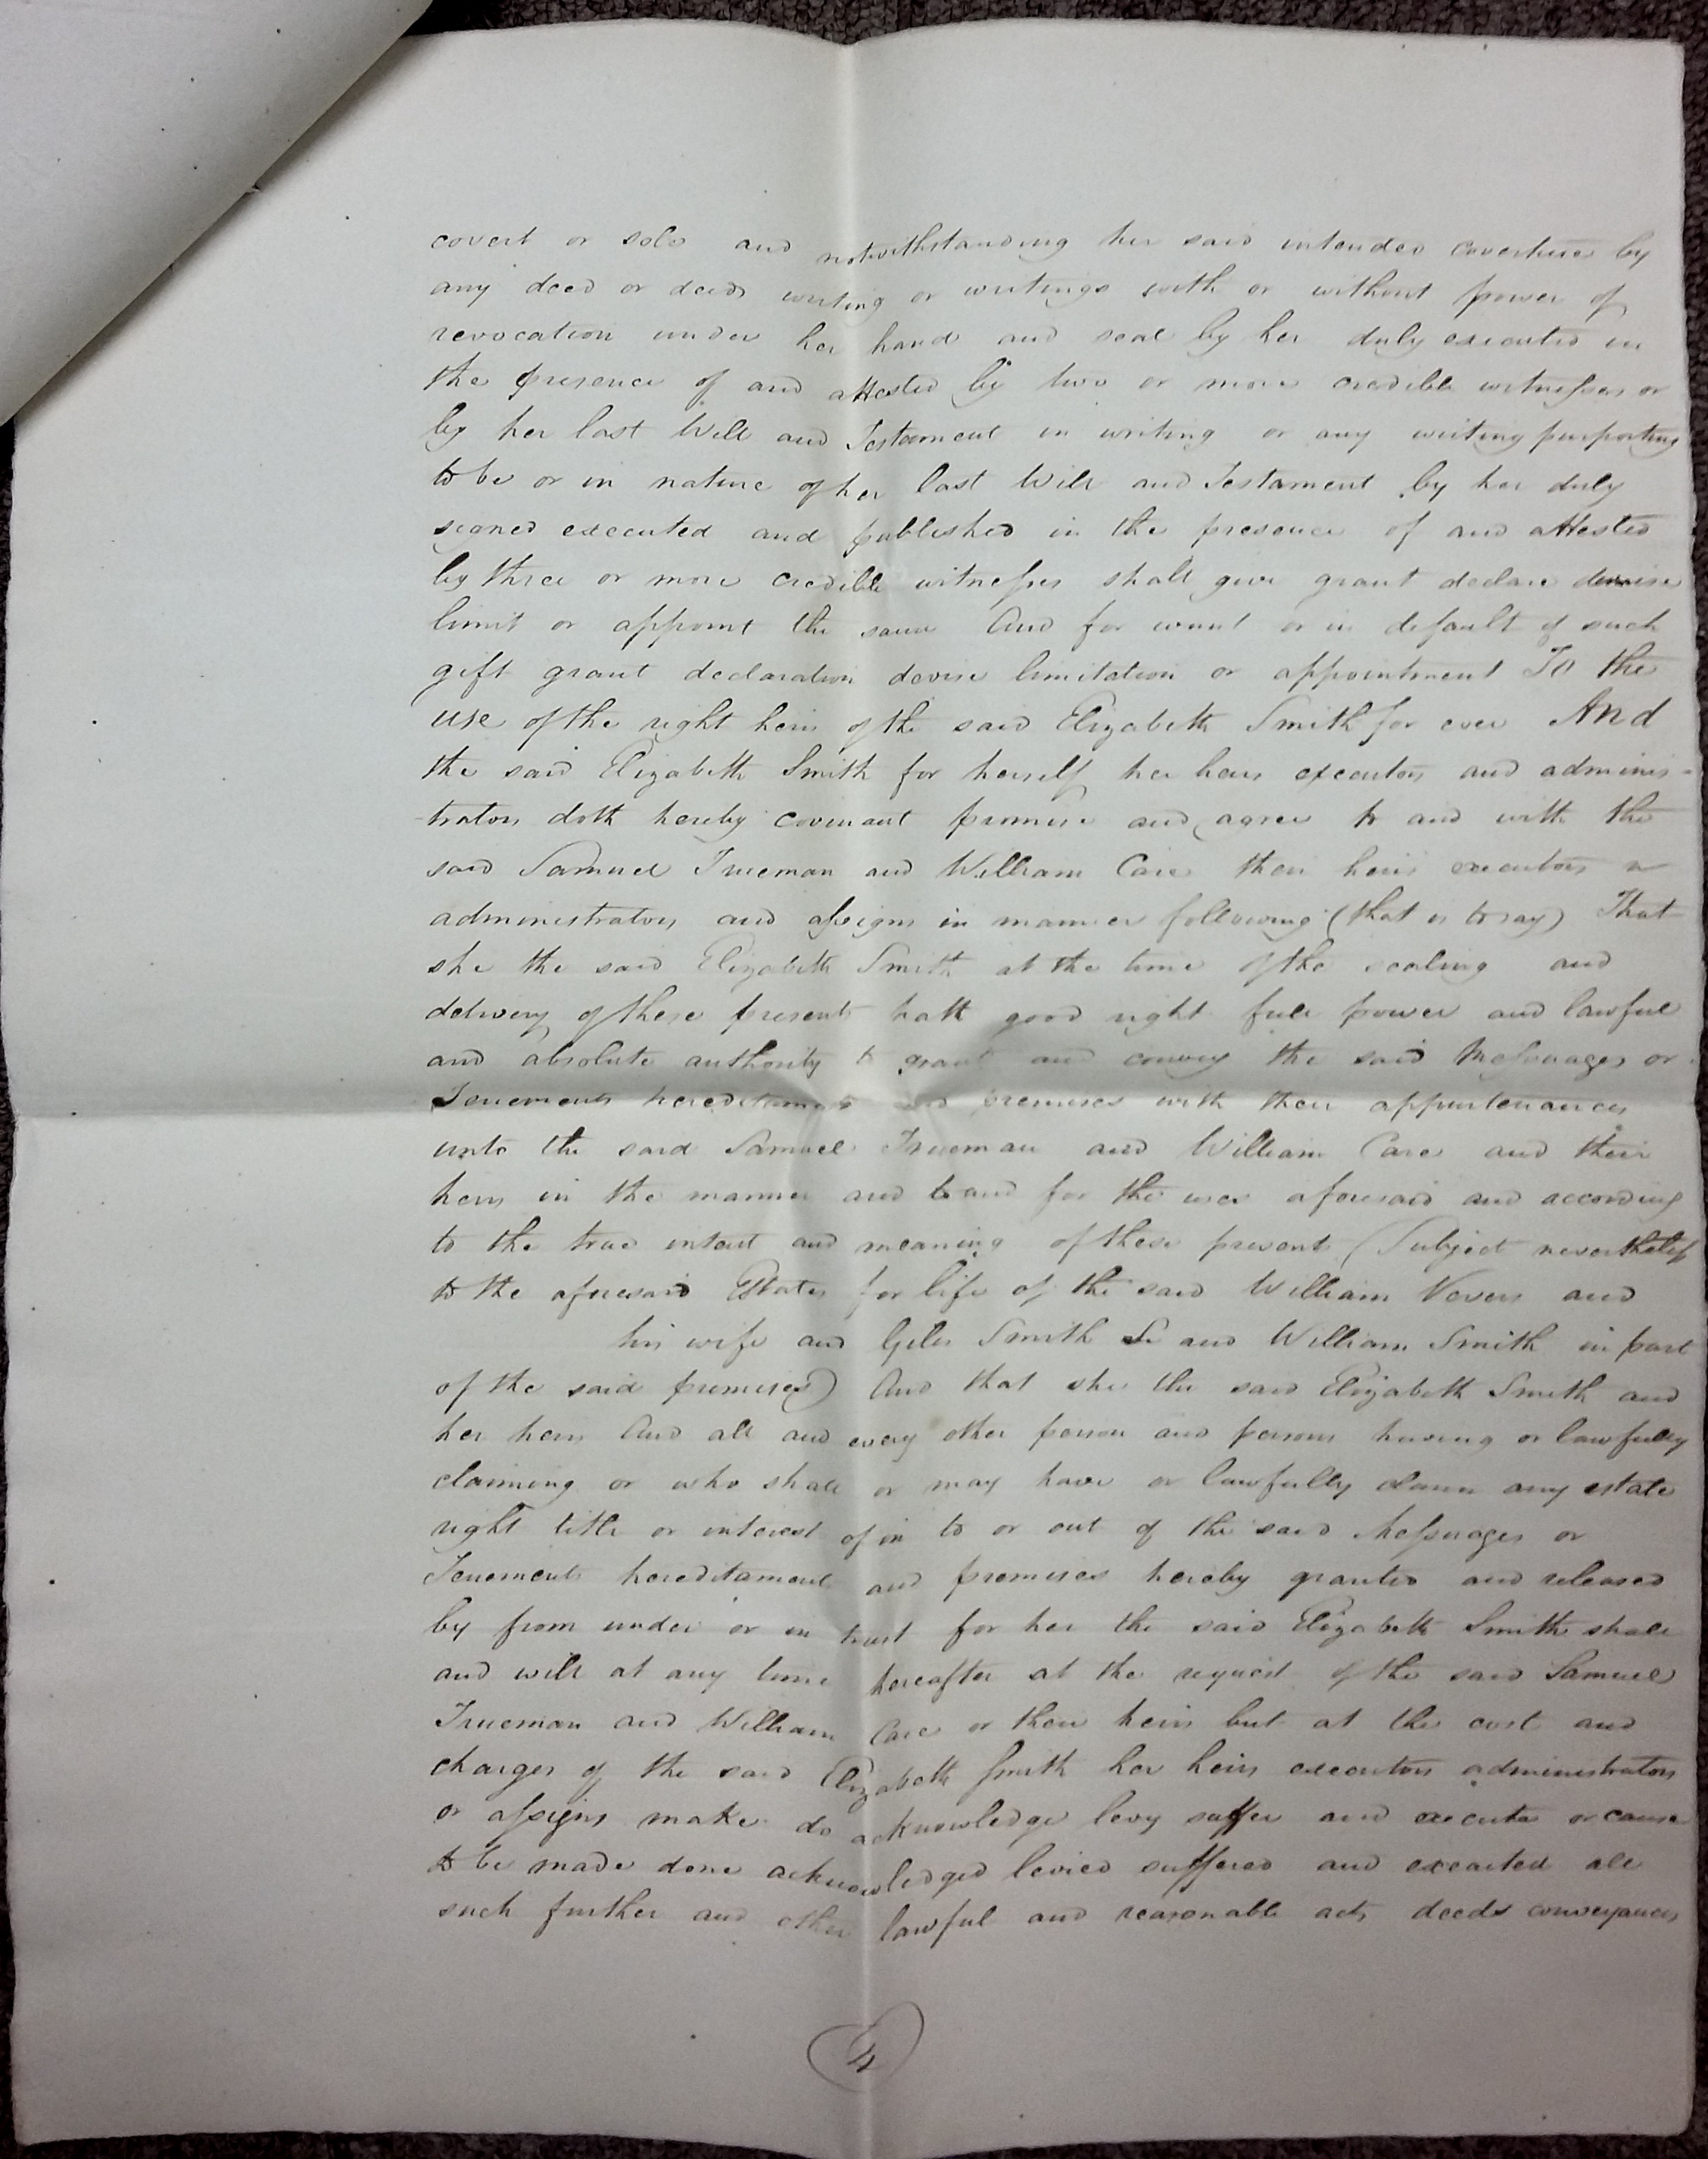 covert or sole and notwithstanding her said intended coverture by
any deed or deeds writing or writings with or without power of
revocation under her hand and seal by her duly executed in
the presence of and attested by two or more credible witnesses or
by her last Will and Testament in writing or any writing purporting
to be or in nature of her last Will and Testament by her duly
signed executed and published in the presence of and attested
by three or more credible witnesses shall give grant declare devise
limit or appoint the same And for want or in default of such
gift grant declaration devise limitation or appointment To the
use of the right heirs of the said Elizabeth Smith for ever And
the said Elizabeth Smith for herself her heirs executors and adminis-
-trators doth hereby covenant promise and agree to and with the
said Samuel Trueman and William Care their heirs executors
administrators and assigns in manner following (that is to say) That
she the said Elizabeth Smith at the time of the sealing and
delivery of these presents hath good right full power and lawful
and absolute authority to grant and convey the said Messuages or
Tenements hereditaments and premises with their appurtenances
unto the said Samuel Trueman and William Care and their
heirs in the manner and to and for the uses aforesaid and according
to the true intent and meaning of these presents (Subject nevertheless
to the aforesaid Estates for life of the said William Nevers and
his wife and Giles Smith Sr and William Smith in part
of the said premises) And that she the said Elizabeth Smith and
her heirs And all and every other person and persons having or lawfully
claiming or who shall or may have or lawfully claim any estate
right title or interest of in to or out of the said Messuages or
Tenements hereditaments and premises hereby granted and released
by from under or in trust for her the said Elizabeth Smith shall
and will at any time hereafter at the request of the said Samuel
Trueman and William Care or their heirs but at the cost and
charges of the said Elizabeth Smith her heirs executors administrators
or assigns make do acknowledge levy suffer and execute or cause
to be made done acknowledged levied suffered and executed all
such further and other lawful and reasonable acts deeds conveyances
4